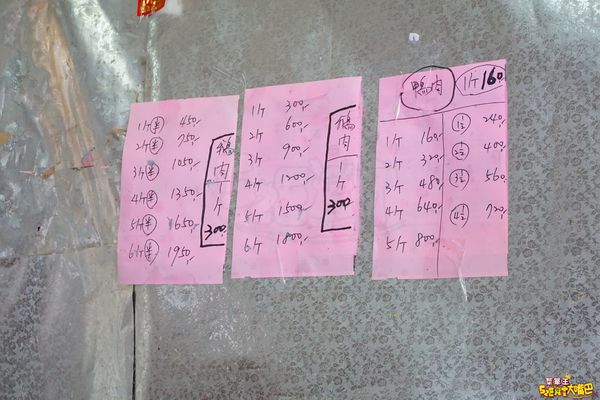 1斤半 450,-
2斤半 750,-
3斤半 1050,-
4斤半 1350,-
5斤半 1650,-
6斤半 1950,-
鵝肉1斤300
1斤 300,-
2斤 600,-
3斤 900,-
4斤 1200,-
5斤 1500,-
6斤 1800,-
鵝肉1斤300
鴨肉 1斤160
1斤 160,-
2斤 320,-
3斤 480,-
4斤 640,-
5斤 800,-
1½ 240,-
2½ 400,-
3½ 560,-
4½ 720,-